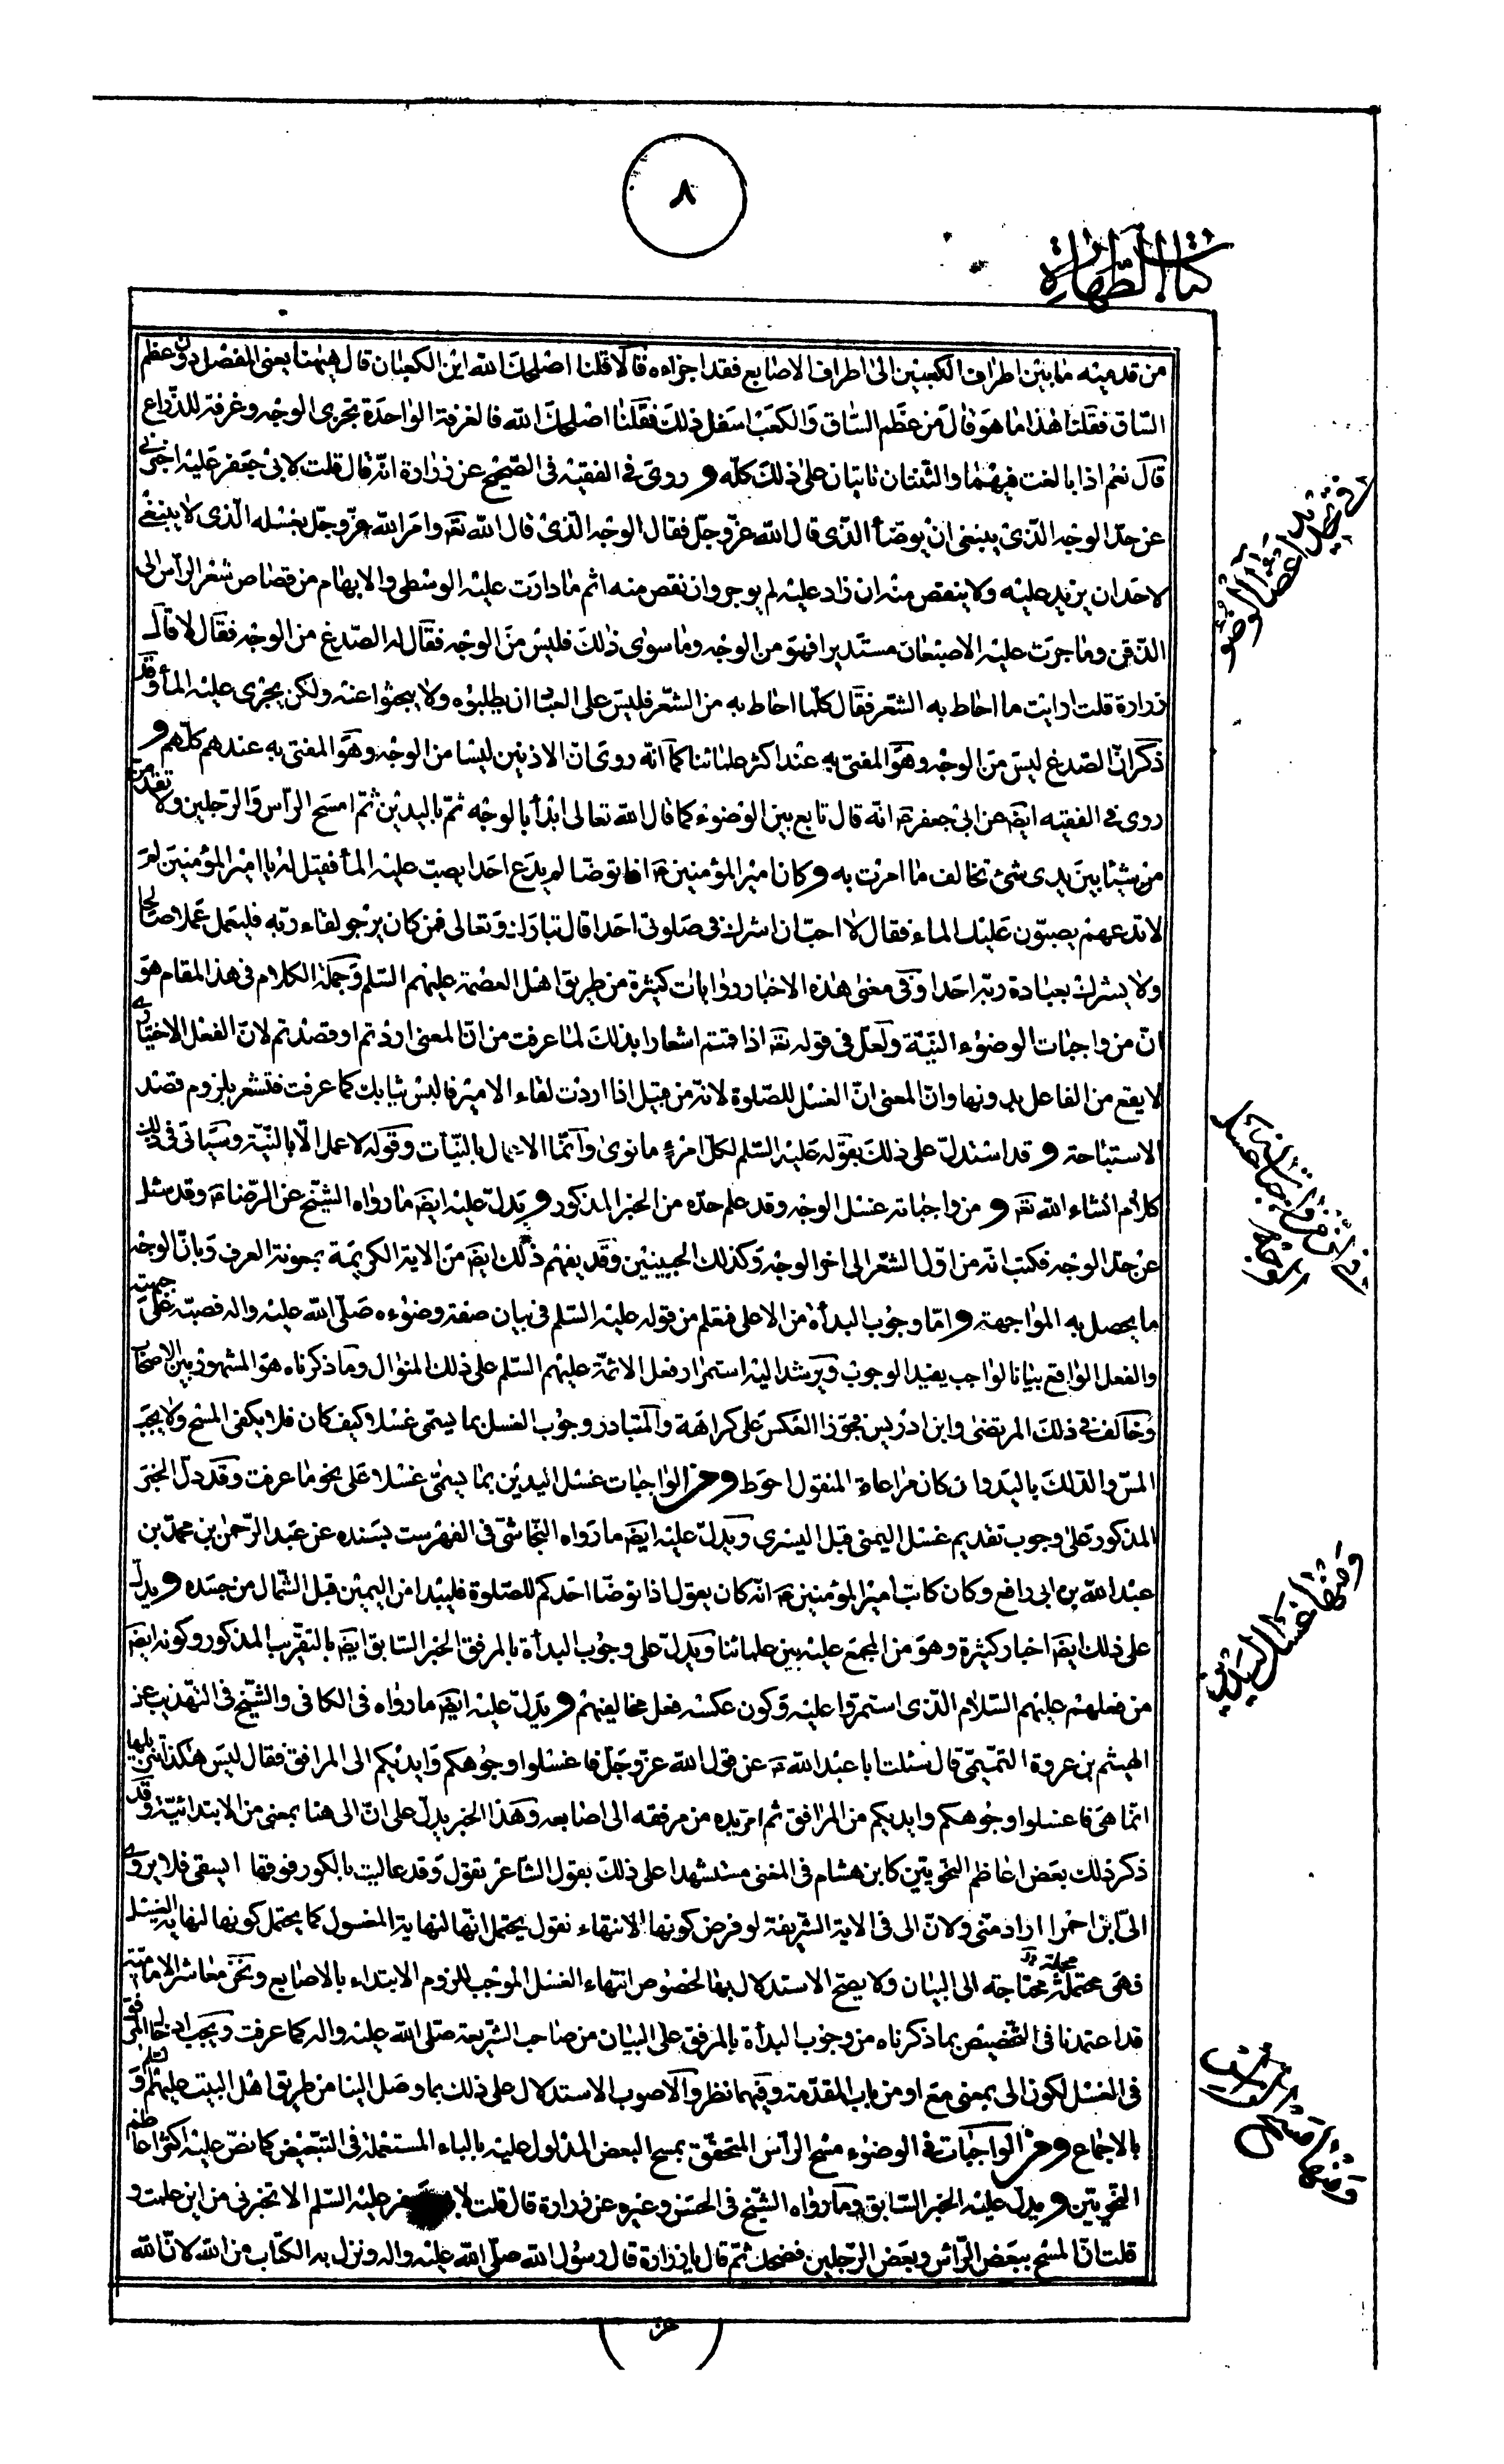 ٨
كتاب الطهارة
من قدميه ما بين اطراف الكعبين الى اطراف الاصابع فقد اجزاءه قالا قلنا اصلحك الله اين الكعبان قال هيهنا يعنى المفصل دون عظم
السّاق فقلنا هذا ما هو قال من عظم السّاق والكعب اسفل ذلك فقلنا اصلحك الله فالغرفة الواحدة تجزى الوجه وغرفة للذّراع
قال نعم اذا بالغت فيهما والثنتان تاتيان على ذلك كلّه و روى فى الفقيه فى الصّحيح عن زرارة انّه قال قلت لابى جعفر عليه اخبرنى
عن حدّ الوجه الّذى ينبغى ان يوضّأ الّذى قال الله عزّ وجلّ فقال الوجه الّذى قال الله تعه وامر الله عزّ وجلّ بغسله الّذى لا ينبغى
لاحد ان يزيد عليه ولا ينقص منه ان زاد عليه لم يوجر وان نقص منه اثم ما دارت عليه الوسطى والابهام من قصاص شعر الرأس الى
الذّقن وما جرت عليه الاصبعان مستديرا فهو من الوجه وما سوى ذلك فليس من الوجه فقال له الصّدغ من الوجه فقال لا قال
زرارة قلت ارايت ما احاط به الشعر فقال كلّما احاط به من الشّعر فليس على العباد ان يطلبوه ولا يبحثوا عنه ولكن يجرى عليه الماء وقد
ذكر انّ الصّدغ ليس من الوجه وهو المفتى به عند اكثر علمائنا كما انّه روى انّ الاذنين ليسا من الوجه وهو المفتى به عندهم كلّهم و
روى فى الفقيه ايضه عن ابى جعفر ع انّه قال تابع بين الوضوء كما قال الله تعالى ابدأ بالوجه ثمّ باليدين ثمّ امسح الرّاس والرّجلين ولا تقدّمن
من شيئا بين يدى شئ تخالف ما امرت به و كان امير المؤمنين ع اذا توضّا لم يدع احدا يصبّ عليه الماء فقيل له يا امير المؤمنين لم
لا تدعهم يصبّون عليك الماء فقال لا احبّ ان اشرك فى صلوتى احدا قال تبارك وتعالى فمن كان يرجو لقاء ربّه فليعمل عملا صالحا
ولا يشرك بعبادة ربّه احدا وفى معنى هذه الاخبار روايات كثيرة من طريق اهل العصمة عليهم السّلم وجملة الكلام فى هذا المقام هو
انّ من واجبات الوضوء النيّة ولعلّ فى قوله تعه اذا قمتم اشعارا بذلك لما عرفت من انّ المعنى اردتم او قصدتم لانّ الفعل الاختيارى
لا يقع من الفاعل بدونها وانّ المعنى انّ الغسل للصّلوة لانّه من قبيل اذا اردت لقاء الامير فالبس ثيابك كما عرفت فتشعر بلزوم قصد
الاستباحة و قد استدلّ على ذلك بقوله عليه السّلم لكلّ امرئ ما نوى وانّما الاعمال بالنيّات وقوله لا عمل الّا بالنيّة وسياتى فى ذلك
كلام انشاء الله تعه و من واجباته غسل الوجه وقد علم حدّه من الخبر المذكور و يدلّ عليه ايضه ما رواه الشّيخ عن الرّضا ع وقد سئل
عن حدّ الوجه فكتب انّه من اول الشعر الى اخر الوجه وكذلك الجبينين وقد يفهم ذلك ايضه من الاية الكريمة بمعونة العرف وبانّ الوجه
ما يحصل به المواجهة و امّا وجوب البدأة من الاعلى فعلم من قوله عليه السّلم فى بيان صفة وضوءه صلّى الله عليه واله فصبّه على جبهته
والفعل الواقع بيانا لواجب يفيد الوجوب ويرشد اليه استمرار فعل الائمّة عليهم السّلم على ذلك المنوال وما ذكرناه هو المشهور بين الاصحاب
وخالف فى ذلك المرتضى وابن ادريس فجوّزا العكس على كراهة والمتبادر وجوب الغسل بما يسمّى غسلا كيف كان فلا يكفى المسح ولا يجب
المسّ والدّلك باليد وان كان مراعاة المنقول احوط و من الواجبات غسل اليدين بما يسمّى غسلا على نحو ما عرفت وقد دلّ الخبر
المذكور على وجوب تقديم غسل اليمنى قبل اليسرى ويدلّ عليه ايضه ما رواه النّجاشى فى الفهرست بسنده عن عبد الرّحمن بن محمّد بن
عبد الله بن ابى رافع وكان كاتب امير المؤمنين ع انّه كان يقول اذا توضّا احدكم للصّلوة فليبدا من اليمين قبل الشّمال من جسده و يدلّ
على ذلك ايضه اخبار كثيرة وهو من المجمع عليه بين علمائنا ويدلّ على وجوب البدأة بالمرفق الخبر السّابق ايضه بالتقريب المذكور وكونه ايضه
من فعلهم عليهم السّلام الّذى استمرّوا عليه وكون عكسه فعل مخالفيهم و يدلّ عليه ايضه ما رواه فى الكافى والشّيخ فى التهذيب عن
الهيثم بن عروة التّميمى قال سئلت ابا عبد الله ع عن قول الله عزّ وجلّ فاغسلوا وجوهكم وايديكم الى المرافق فقال ليس هكذا تنزيلها
انّما هى فاغسلوا وجوهكم وايديكم من المرافق ثم امرّ يده من مرفقه الى اصابعه وهذا الخبر يدلّ على انّ الى هنا بمعنى من الابتدائيّة وقد
ذكر ذلك بعض اعاظم النحويّين كابن هشام فى المغنى مستشهدا على ذلك بقول الشّاعر تقول وقد عاليت بالكور فوقها ايسقى فلا يروى
الىّ ابن احمرا اراد منّى ولانّ الى فى الاية الشّريفة لو فرض كونها الانتهاء نقول يحتمل انّها لنهاية المغسول كما يحتمل كونها لنهاية الغسل
فهى محتملة مجملة محتاجة الى البيان ولا يصحّ الاستدلال بها لخصوص انتهاء الغسل الموجب للزوم الابتداء بالاصابع ونحن معاشر الاماميّة
قد اعتمدنا فى التّخصيص بما ذكرناه من وجوب البدأة بالمرفق على البيان من صاحب الشّريعة صلّى الله عليه واله كما عرفت ويجب ادخال المرفق
فى الغسل لكون الى بمعنى مع او من باب المقدّمة وفيهما نظر والاصوب الاستدلال على ذلك بما وصل الينا من طريق اهل البيت عليهم السّلم و
بالاجماع و من الواجبات فى الوضوء مسح الرّأس المتحقّق بمسح البعض المدلول عليه بالباء المستعملة فى التّبعيض كما نصّ عليه اكثر اعاظم
النحويّين و يدلّ عليه الخبر السّابق وما رواه الشّيخ فى الحسن وغيره عن زرارة قال قلت لابى جعفر عليه السّلم الا تخبرنى من اين علمت و
قلت انّ المسح ببعض الرّأس وبعض الرّجلين فضحك ثمّ قال يا زرارة قال رسول الله صلّى الله عليه واله ونزل به الكتاب من الله لانّ الله
ومنها غسل اليدين
ومنها مسح الراس